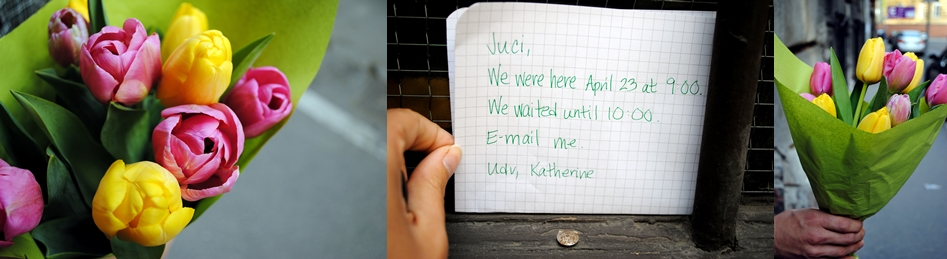 Juci,
We were here April 23 at 9:00.
We waited until 10:00.
E-mail me.
Udv, Katherine